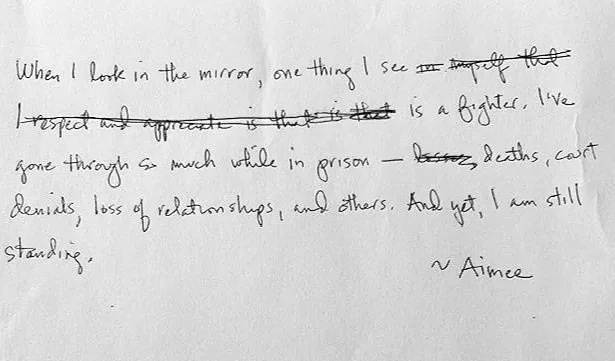 When I look in the mirror, one thing I see in myself that
I respect and appreciate is that is that is a fighter. I've
gone through so much while in prison — losses, deaths, court
denials, loss of relationships, and others. And yet, I am still
standing.
~ Aimee